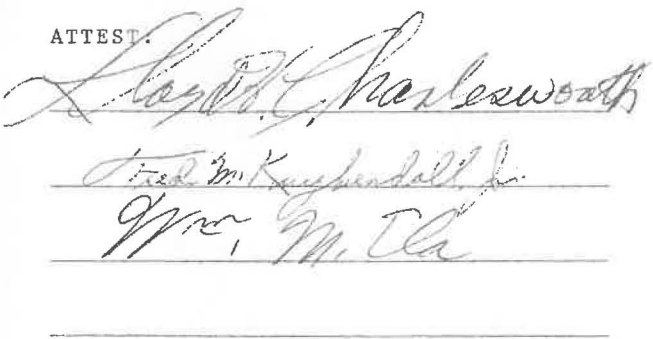 ATTEST:
Lloyd H. Charlesworth
Fred M. Kuykendall Jr.
Wm. M.